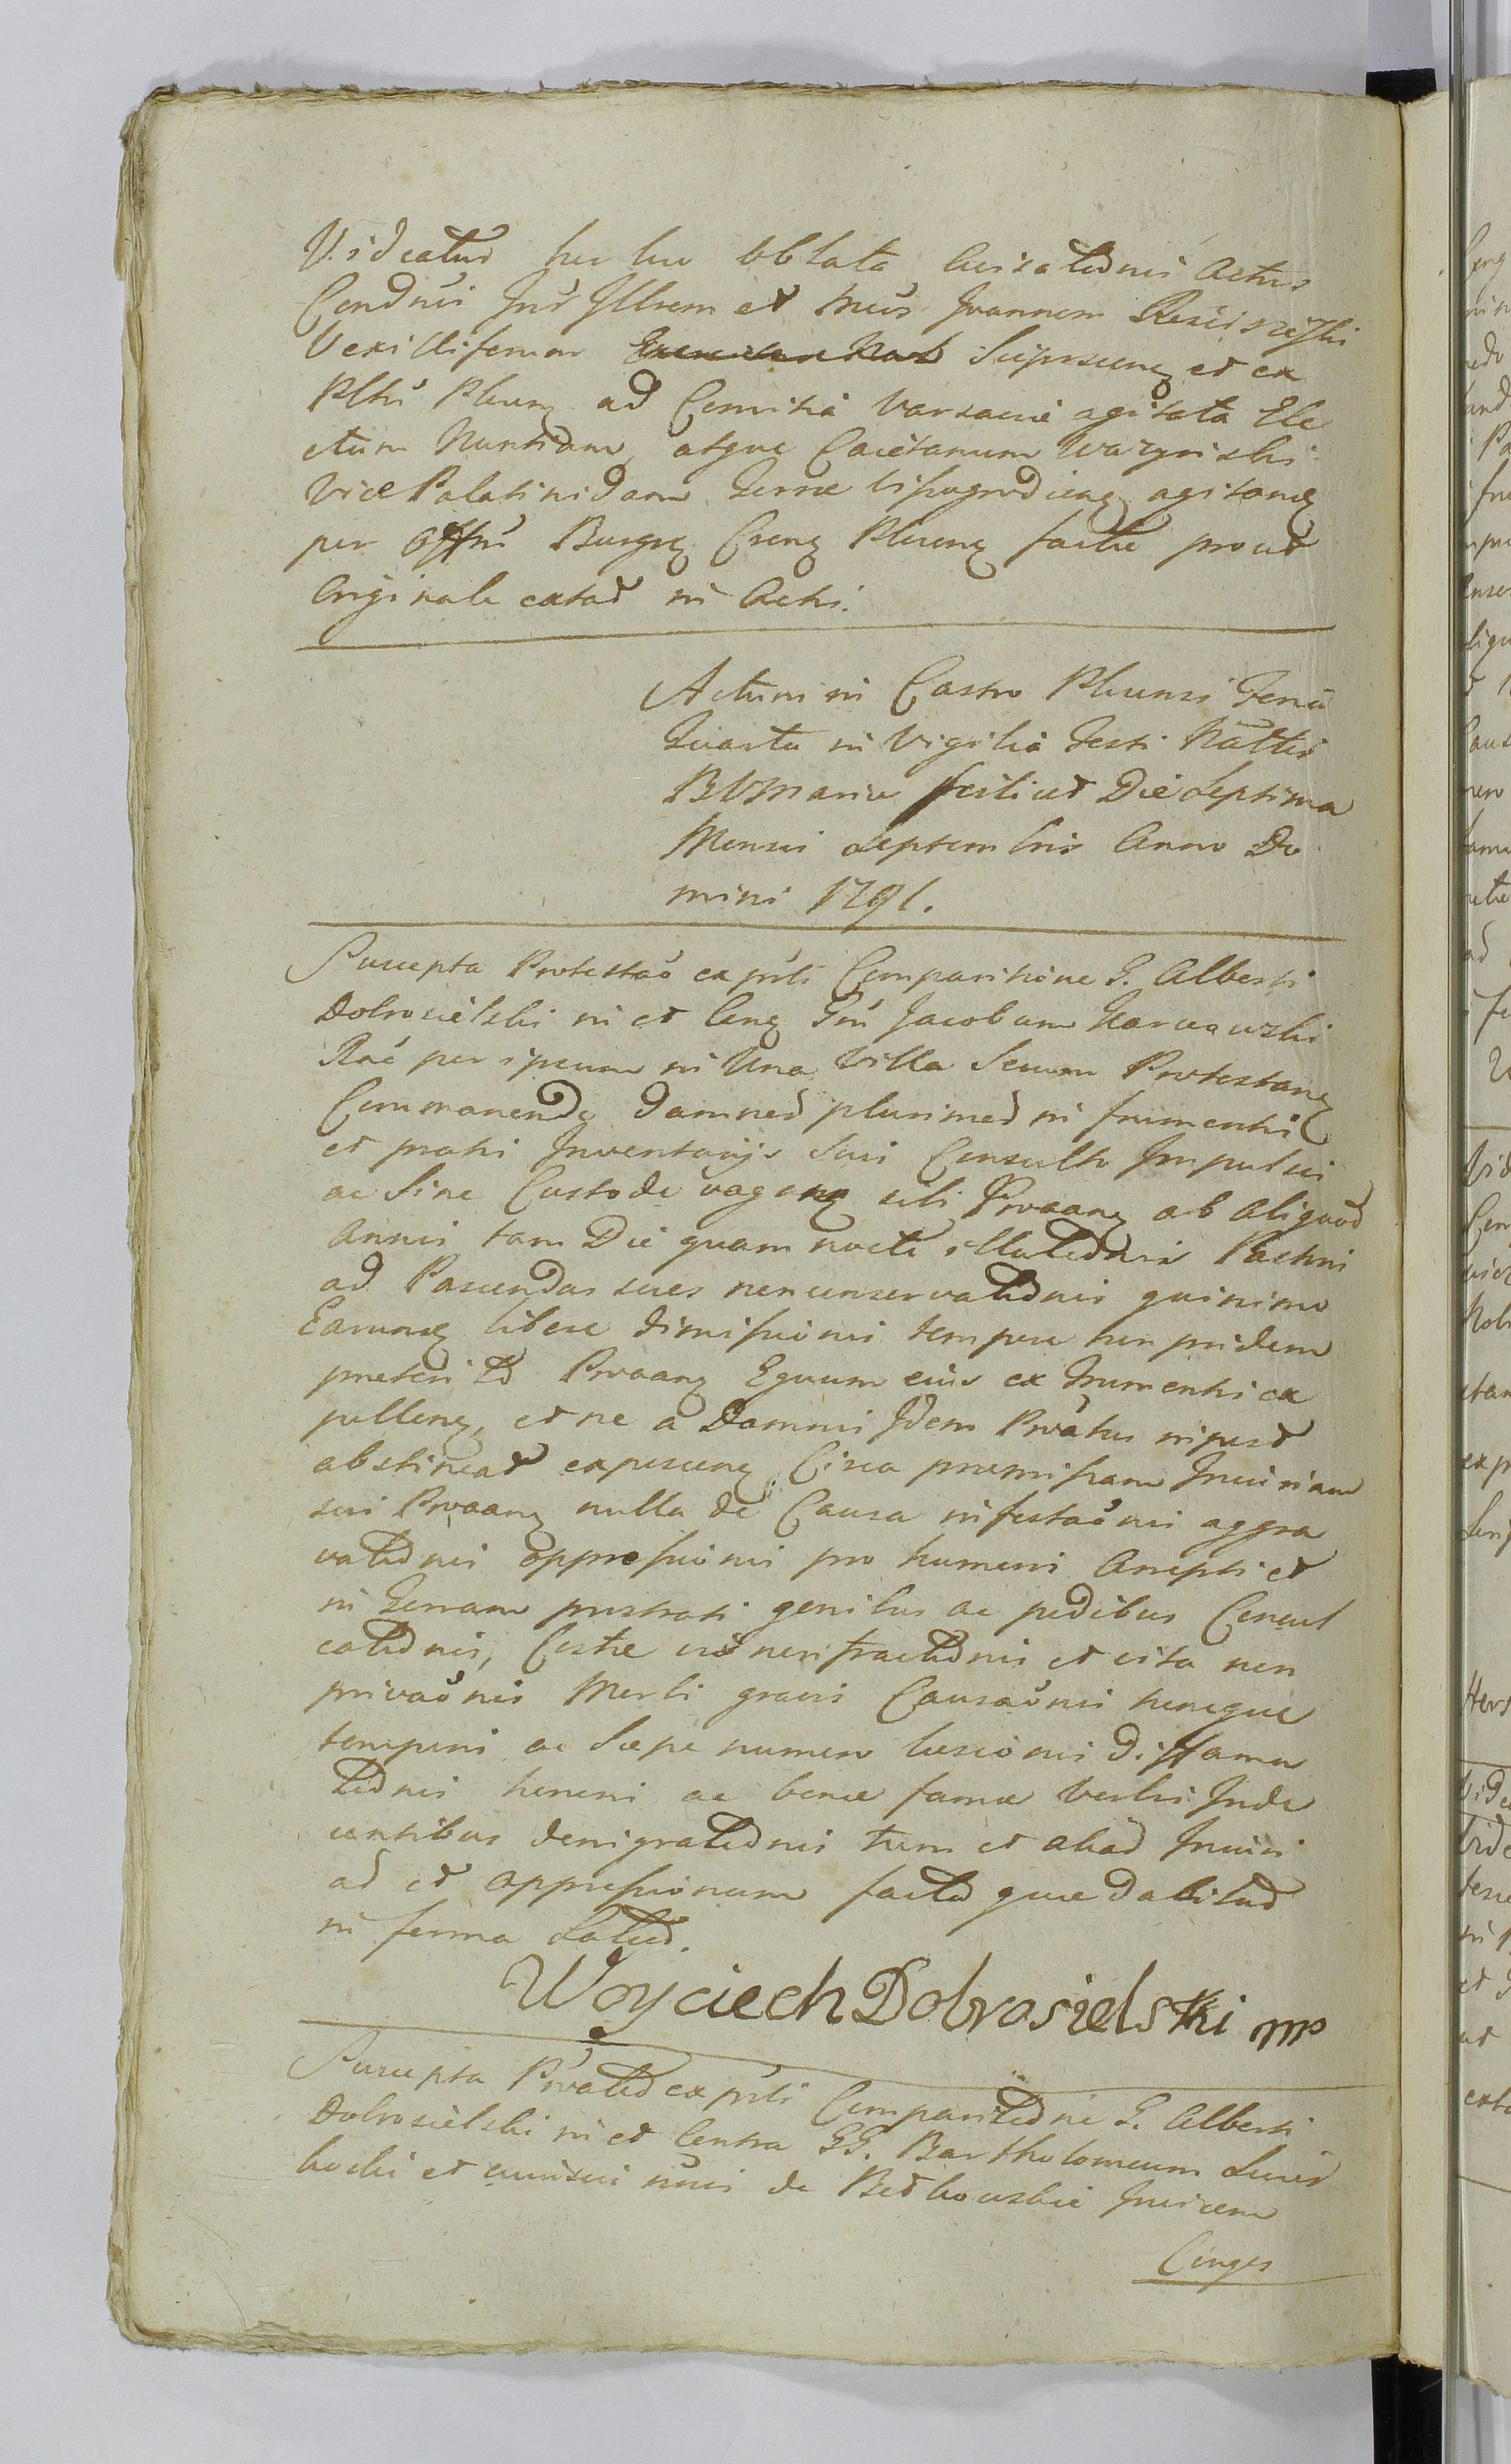 Videatur hic loco Oblata Avisationis Actus
Condnis Inr Illrem et Mcus Joannem Rościszewski
Vexilliferum Sierpscens et ex
Pltu Plocens ad Comitia Varsaviæ agitata Ele
ctum Nuntium, atque Caietanum Warzycki
Vice Palatinidam Terræ Wissogrodiens agitans
per Offm Burgrs Crens Plocens factæ prout
Originale extat in Actis.
Actum in Castro Plocensi Feria
Quarta in Vigilia Festi Natttis
BVMariæ scilicet Die Septima
Mensis Septembris Anno Do
mini 1791.
Suscepta Protestao ex prsti Comparitione G. Alberti
Dobrosielski in et Cons Gm Jacobum Karwowski
Rae per ipsum in Una Villa Secum Protestans
Commanends damnos plurimos in frumentis
et pratis Inventarijs suis Consulto Impulsis
ac sine Custode vagans sibi Prvaans ab aliquot
annis tam Die quam nocte illationis Pastoris
ad Pascendas sues non conservationis quinimo
Earums libere dimissionis tempore non pridem
præterito Prvaans Equum eius ex frumentis ex
pellens, et ne a Damnis Idem Prvatus in post
abstineat exposcens Circa præmissam Iniuriam
sui Prvaans nulla de Causa infestaonis aggra
vationis oppressionis pro humeris Arrepti et
in Terram prostrati genibus ac pedibus Concul
cationis, Costæ eius confractionis et vita non
privaonis Morbi gravis Causaonis hocque
tempori ac Sæpe numero læsionis diffama
tionis honoris ac bonæ famæ Verbis Inde
centibus denigrationis tum et aliad Iniuri
ad et oppressionum facto quæ dabitur
in forma Latiori.
Woyciech Dobrosielski mp
Suscepta Prvatio ex prsti Comparitione G. Alberti
Dobrosielski in et Contra GG. Bartholomeum Suc
hocki et eumsui nnis de Bodkowskie Invicem
Conges